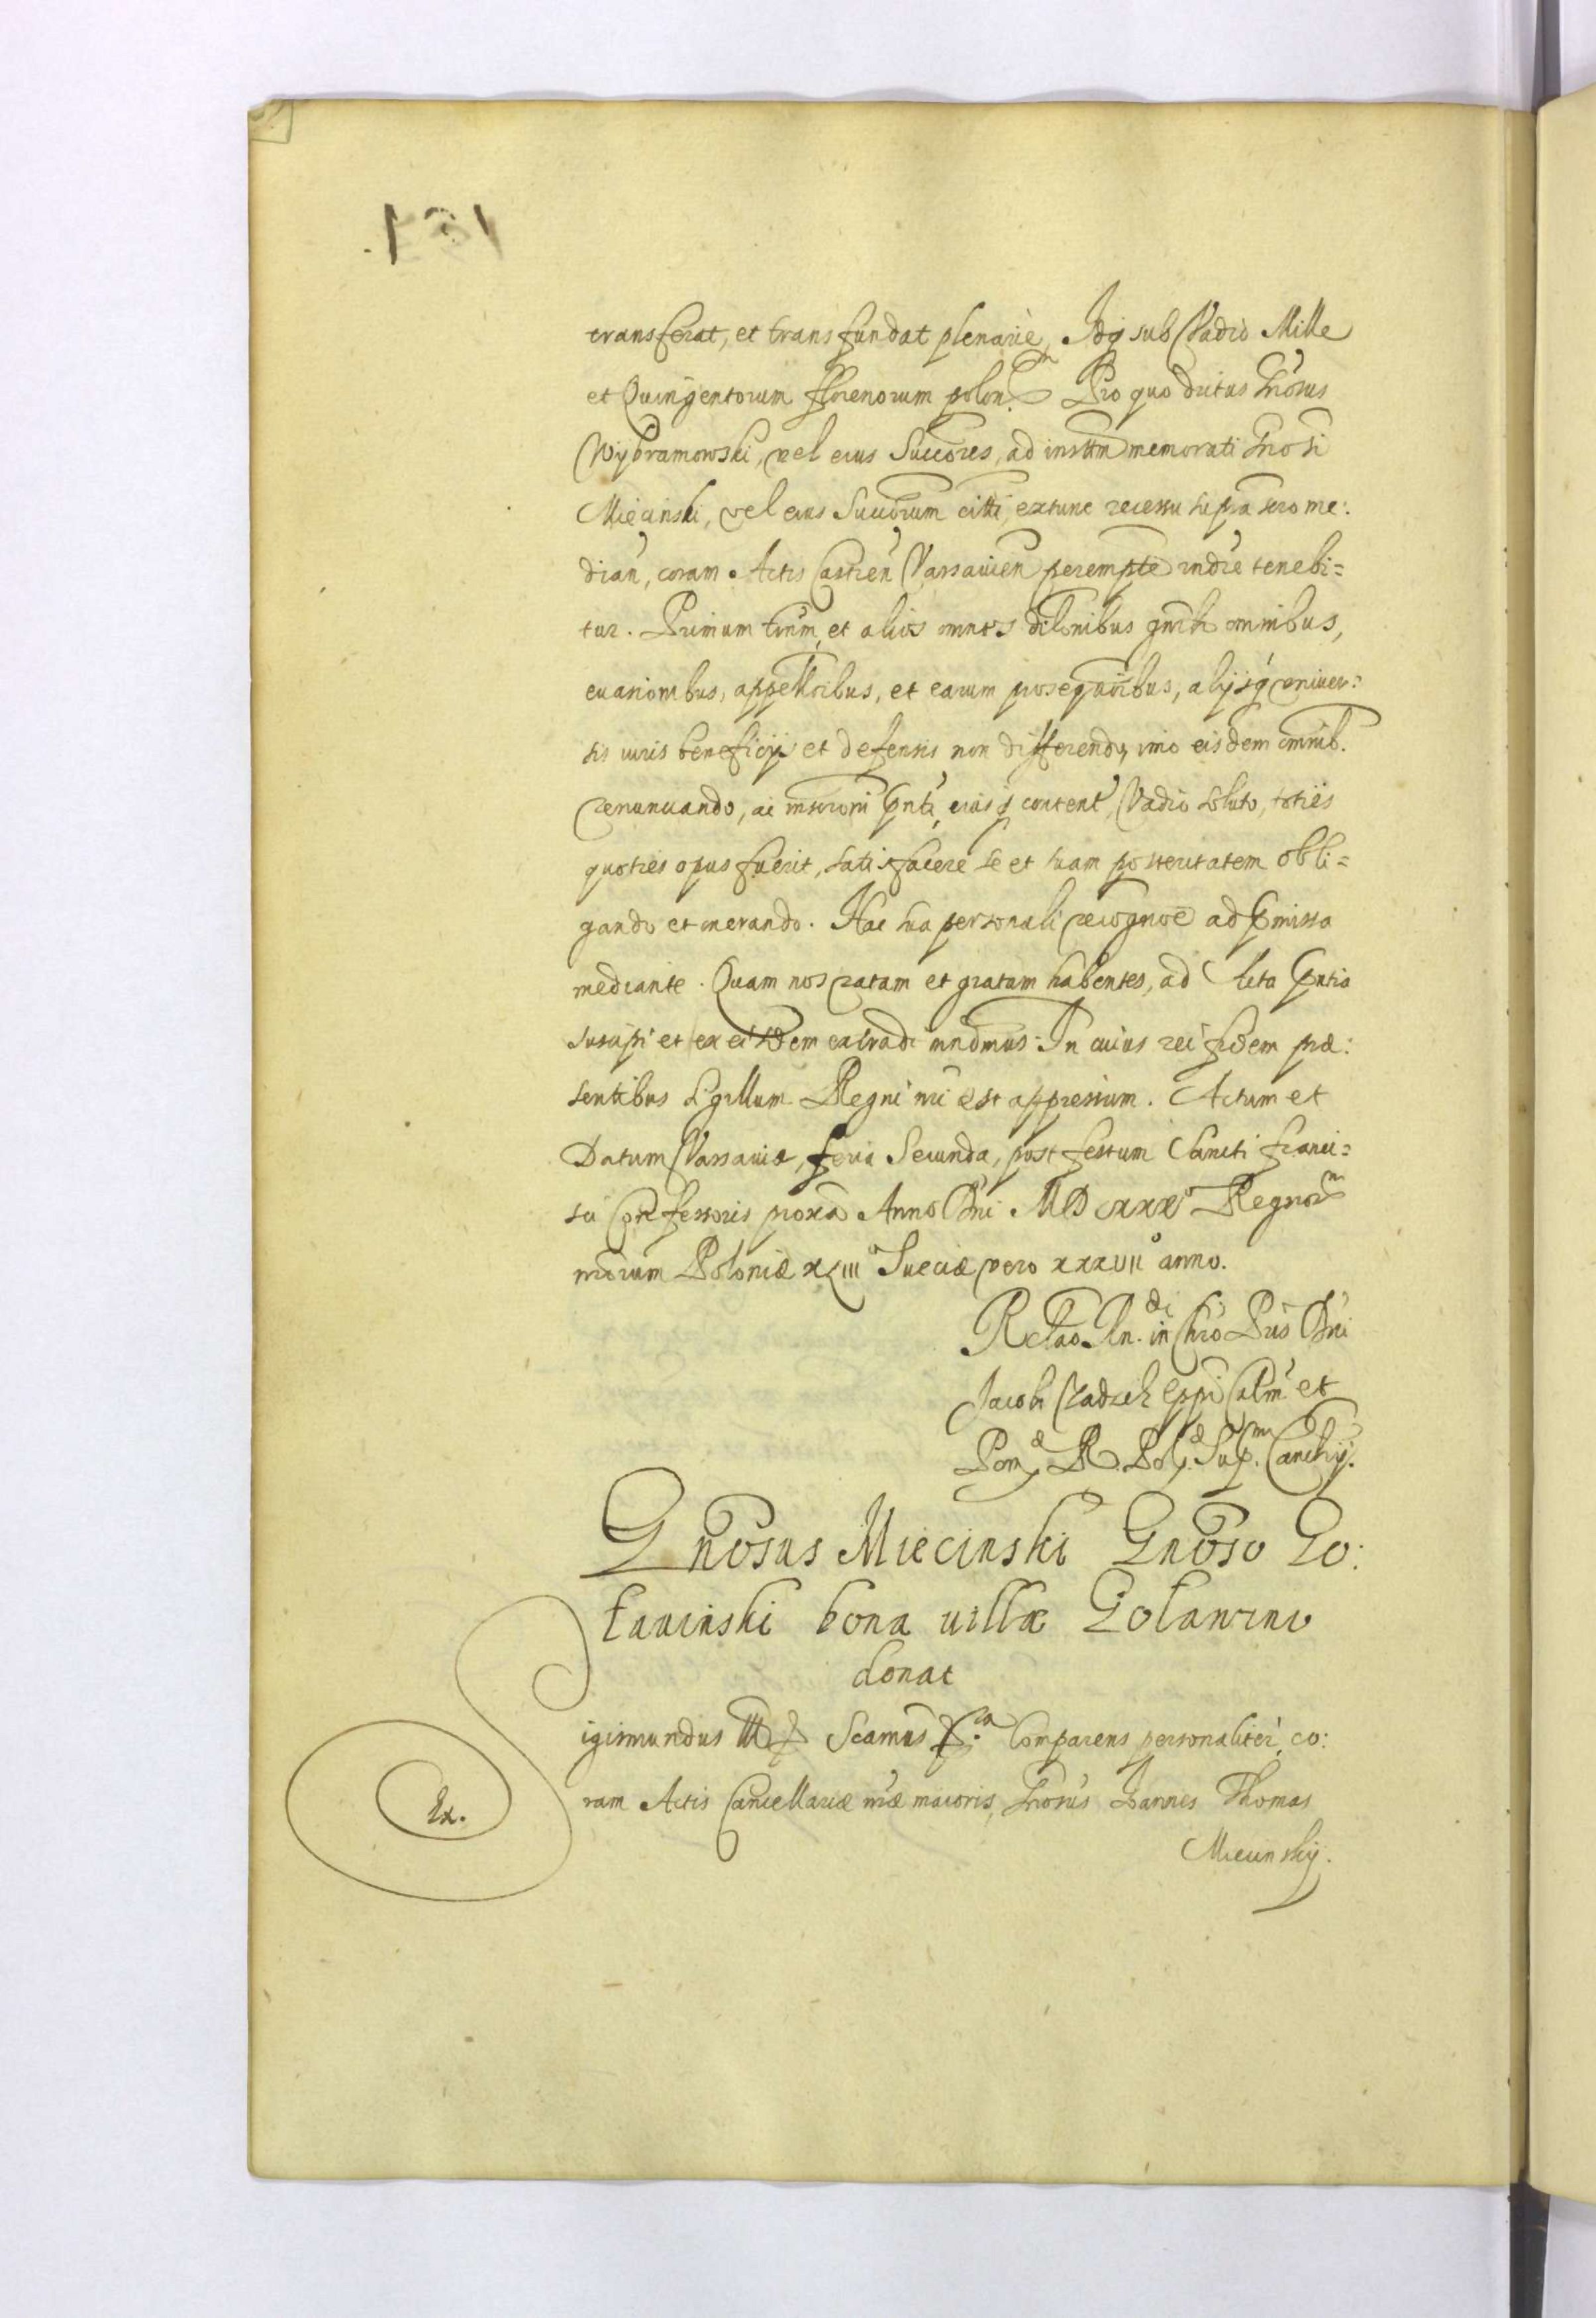 transferat, et transfundat plenariè, Idq sub Vadio Mille
et Quingentorum florenorum polon. Pro quo dictus Gnosus
Wybramowski, vel eius Succores, ad insttm memorati Gnosi
Miecinski, vel eius Succorum citti, extunc recessu supra scro me:
dian, coram Actis Castren Varsavien perempte indie tenebi=
tur. Primum trnm, et alios omnes dilonibus gnrlr omnibus,
euasionibus, appellibus, et earum prosequoibus, alijsq vniuer:
sis iuris beneficijs et defensis non differendo, imo eisdem omnib.
renunciando, ac inscroni pnti, eiusq content, Vadio soluto, toties
quoties opus fuerit, satisfacere se et suam posteritatem obli=
gando et onerando. Hac sua personali recognoe ad pmissa
mediante. Quam nos ratam et gratam habentes, ad Acta pntia
suscipi et ex eisdem extradi mndmus. In cuius rei fidem præ:
sentibus Sigillum Regni nri est appressum. Actum et
Datum Varsauiæ, feria Secunda, post festum Sancti Franci=
sci Confessoris proxa Anno Dni MDCXXX Regnor
nrorum Poloniæ XLIII Sueciæ vero XXXVII anno.
Relao Rn.di in Chro Pris Dni
Jacobi Zadzik Eppi Culm et
Pom. R. Pol. Sup. Cancrij.
Gnosus Miecinski Gnoso Go:
ławinski bona villæ Golanino
donat
igismundus III Scamus Comparens personaliter, co:
ram Actis Cancellariæ nræ maioris, Gnosus Ioannes Thomas
Miecinskij.
Ex.